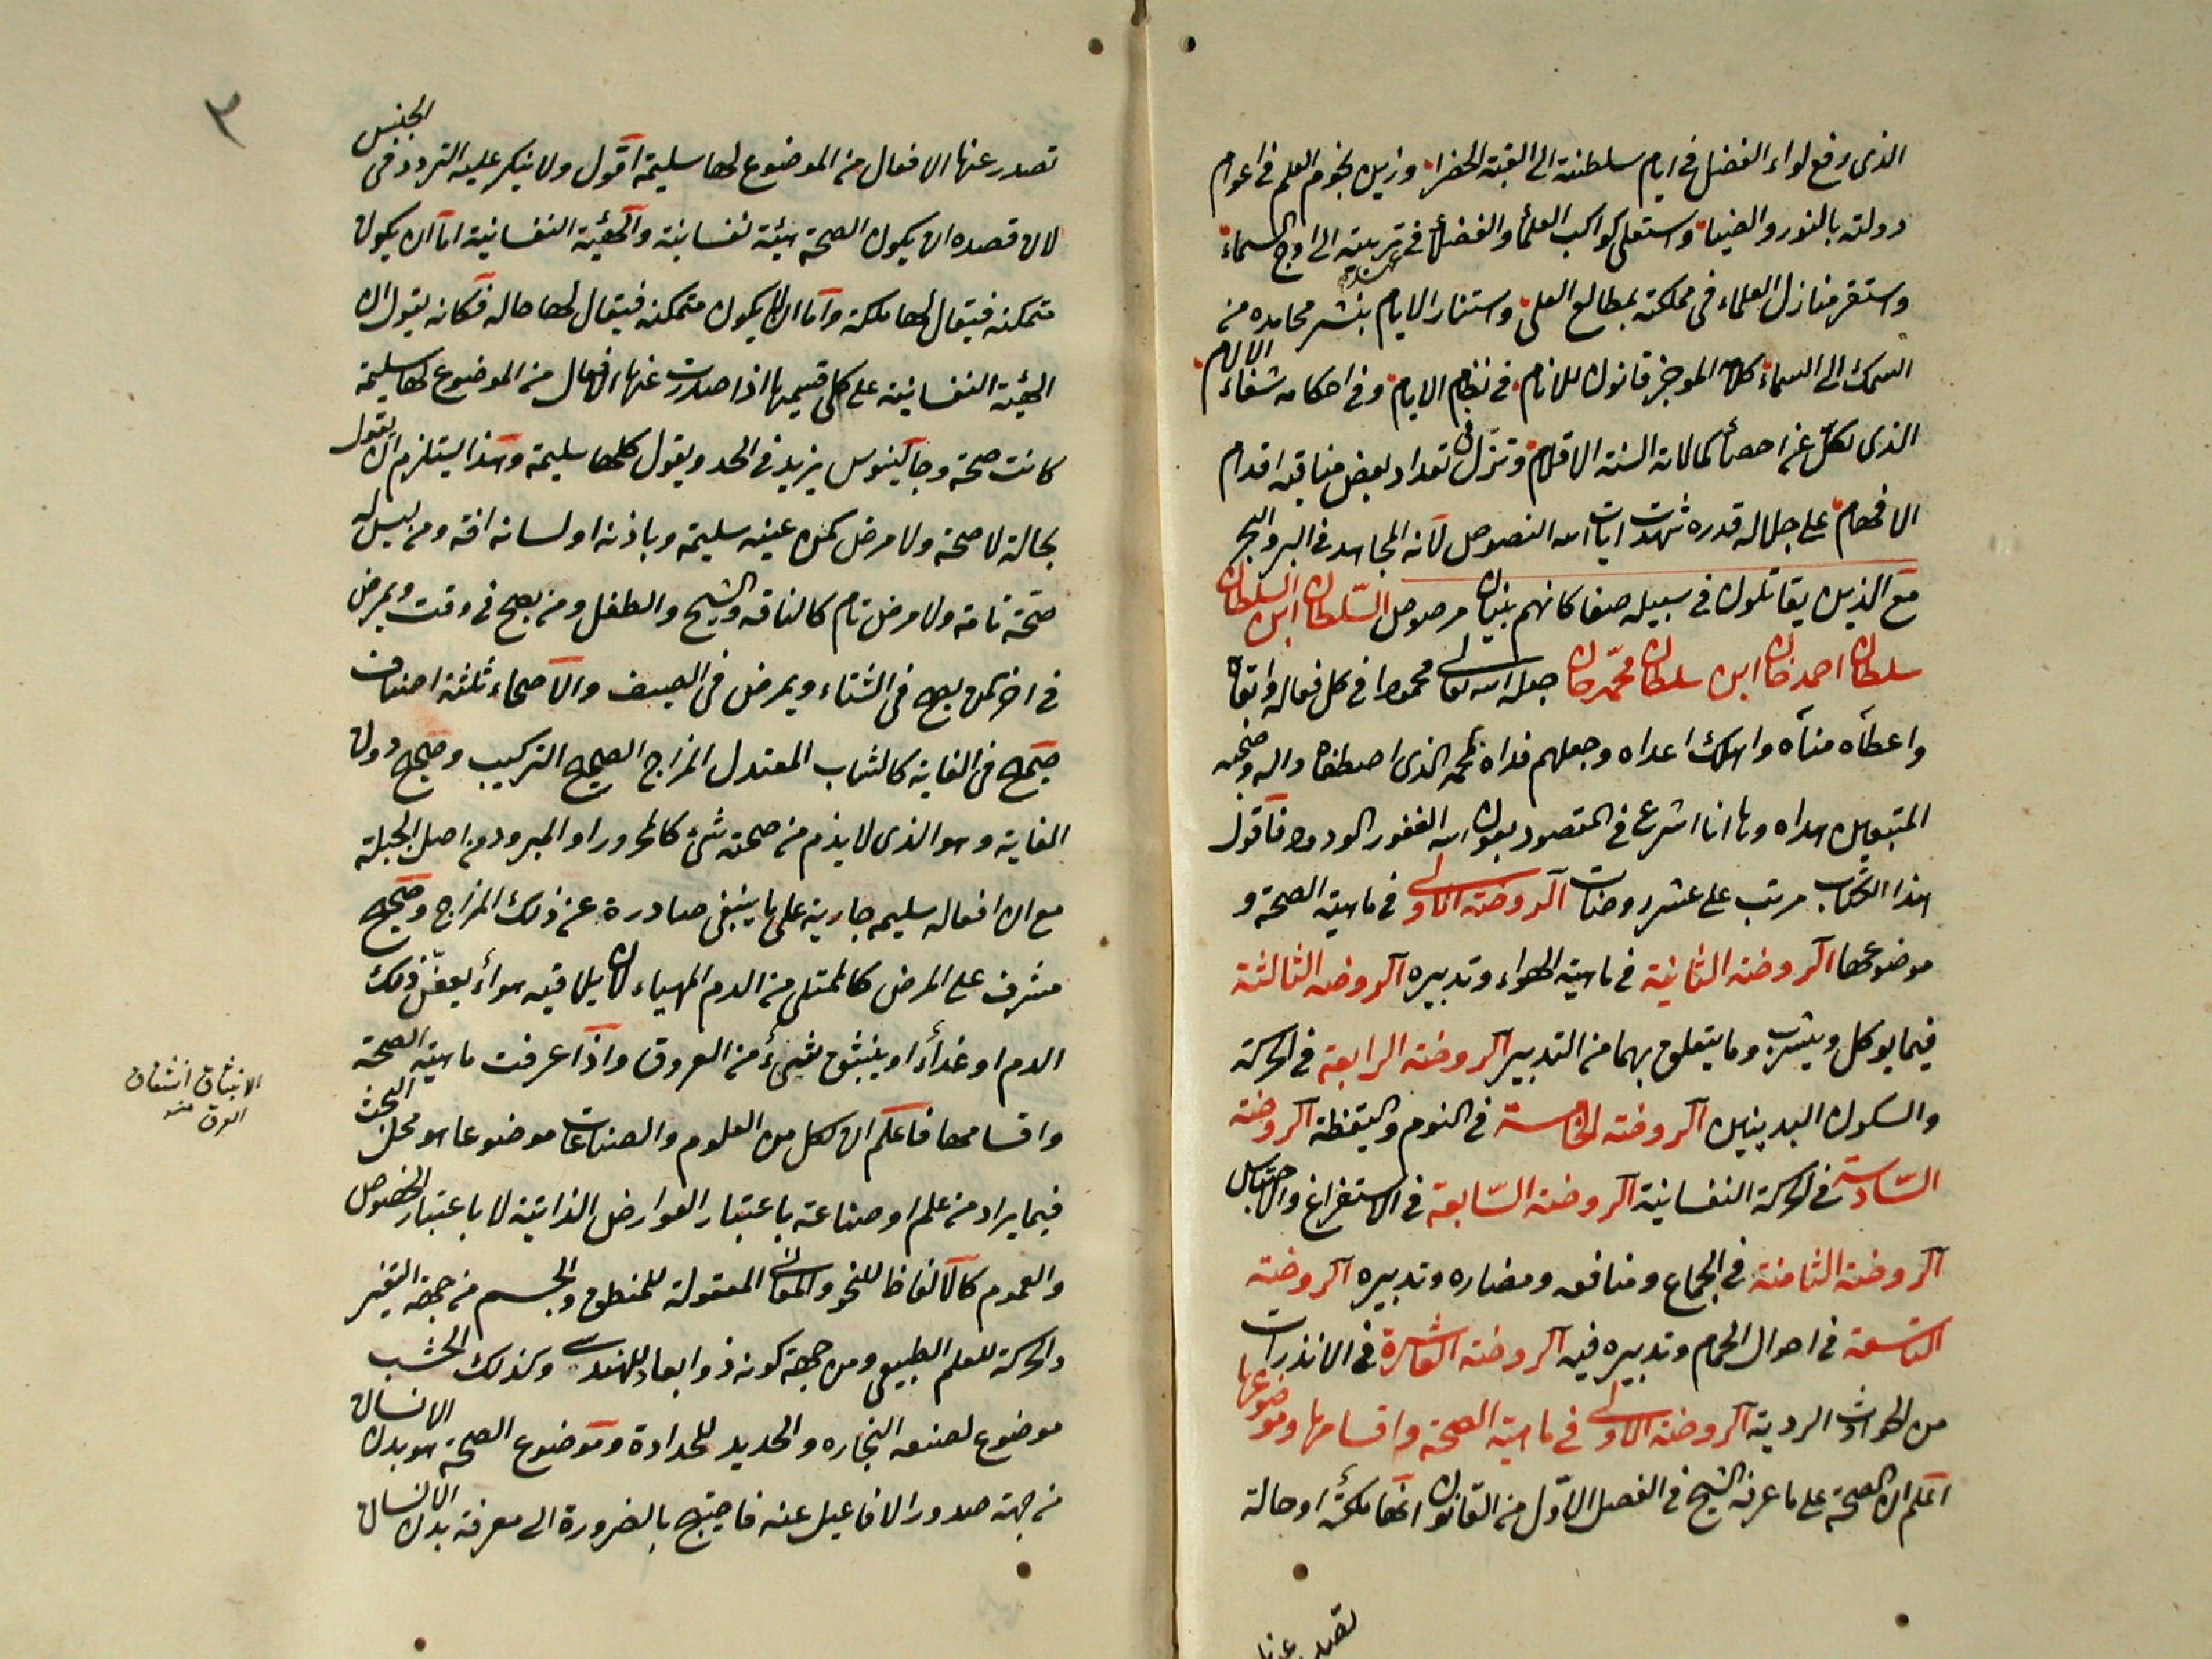 الذى رفع لواء الفضل فى ايام سلطنته الى القبة الخضرا وزين نجوم العلم فى اعوام
دولته بالنور والضيا واستعلى كواكب العلما والفضلا فى تربيته الى اوج السماء
واستقر منازل العلماء فى مملكته بمطالع العلى واستنار الايام بنشر محامده من
السمك الى السماء كلامه الموجز قانون للانام فى نظام الايام وفى احكامه شفاء الالام
الذى لكل عن احصا كمالاته السنة الاقلام وتزل فى تعداد بعض مناقبه اقدام
الافهام على جلاله قدره شهدت ايات الله النصوص لانه المجاهد فى البر والبحر
مع الذين يقاتلون فى سبيله صفا كانهم بنيان مرصوص السلطان ابن السلطان
سلطان احمد خان ابن سلطان محمد خان جعله الله تعالى محمودا فى كل فعاله وابقاه
واعطاه مناه واهلك اعداه وجعلهم فداه بمحمد الذى اصطفاه واله وصحبه
المتبعين هداه وها انا اشرع فى المقصود بعون الله الغفور الودود فاقول
هذا الكتاب مرتب على عشر روضات الروضة الاولى فى ماهية الصحة و
موضوعها الروضة الثانية فى ماهية الهواء وتدبيره الروضة الثالثة
فيما يوكل ويشرب وما يتعلق بهما من التدبير الروضة الرابعة فى الحركة
والسكون البدنيين الروضة الخامسة فى النوم واليقظة الروضة
السادسة فى الحركة النفسانية الروضة السابعة فى الاستفراغ والاحتباس
الروضة الثامنة فى الجماع ومنافعه ومضاره وتدبيره الروضة
التاسعة فى احوال الحمام وتدبيره فيه الروضة العاشرة فى الانذرات
من الحوادث الردية الروضة الاولى فى ماهية الصحة واقسامها وموضوعها
اعلم ان الصحة على ما عرفه الشيخ فى الفصل الاول من القانون انها ملكة او حالة
تصدر عنها
٣
تصدر عنها الافعال من الموضوع لها سليمة اقول ولا ينكر عليه التردد فى الجنس
لان قصده ان يكون الصحة هيئة نفسانية والهيئة النفسانية اما ان يكون
متمكنه فيقال لها ملكة واما ان لا يكون متمكنه فيقال لها حاله فكانه يقول ان
الهيئة النفسانية على كلى قسيمها اذا صدرت عنها الافعال من الموضوع لها سليمة
كانت صحة وجالينوس يزيد فى الحد ويقول كلها سليمة وهذا يستلزم ان يقول
بحالة لا صحة ولا مرض كمن عينه سليمة وباذنه او لسانه افة ومن ليس له
صحة تامة ولا مرض تام كالناقه والشيخ والطفل ومن يصح فى وقت ويمرض
فى اخر كمن يصح فى الشتاء ويمرض فى الصيف والاصحاء ثلثة اصناف
صحيح فى الغاية كالشاب المعتدل المزاج الصحيح التركيب وصحيح دون
الغاية وهو الذى لا يذم من صحته شئ كالمحرور او المبرود من اصل الجبلة
مع ان افعاله سليمه جارية على ما ينبغى صادرة عن ذلك المزاج وصحيح
مشرف على المرض كالممتلى من الدم المهياء لان يلاقيه هواء يعفن ذلك
الدم او غذاء او ينبثق شئ من العروق واذا عرفت ماهية الصحة
واقسامها فاعلم ان لكل من العلوم والصناعات موضوعا هو محل البحث
فيما يراد من علم او صناعة باعتبار العوارض الذاتية لا باعتبار الخصوص
والعموم كالالفاظ للنحو والمعانى المعقولة للمنطق والجسم من جهة التغير
والحركة للعلم الطبيعى ومن جهة كونه ذو ابعاد للهندسى وكذلك الخشب
موضوع لصنعه النجاره والحديد للحدادة وموضوع الصحة هو بدن الانسان
من جهة صدور الافاعيل عنه فاحتيج بالضرورة الى معرفة بدن الانسان
الانبثاق انشقاق
العرق منه